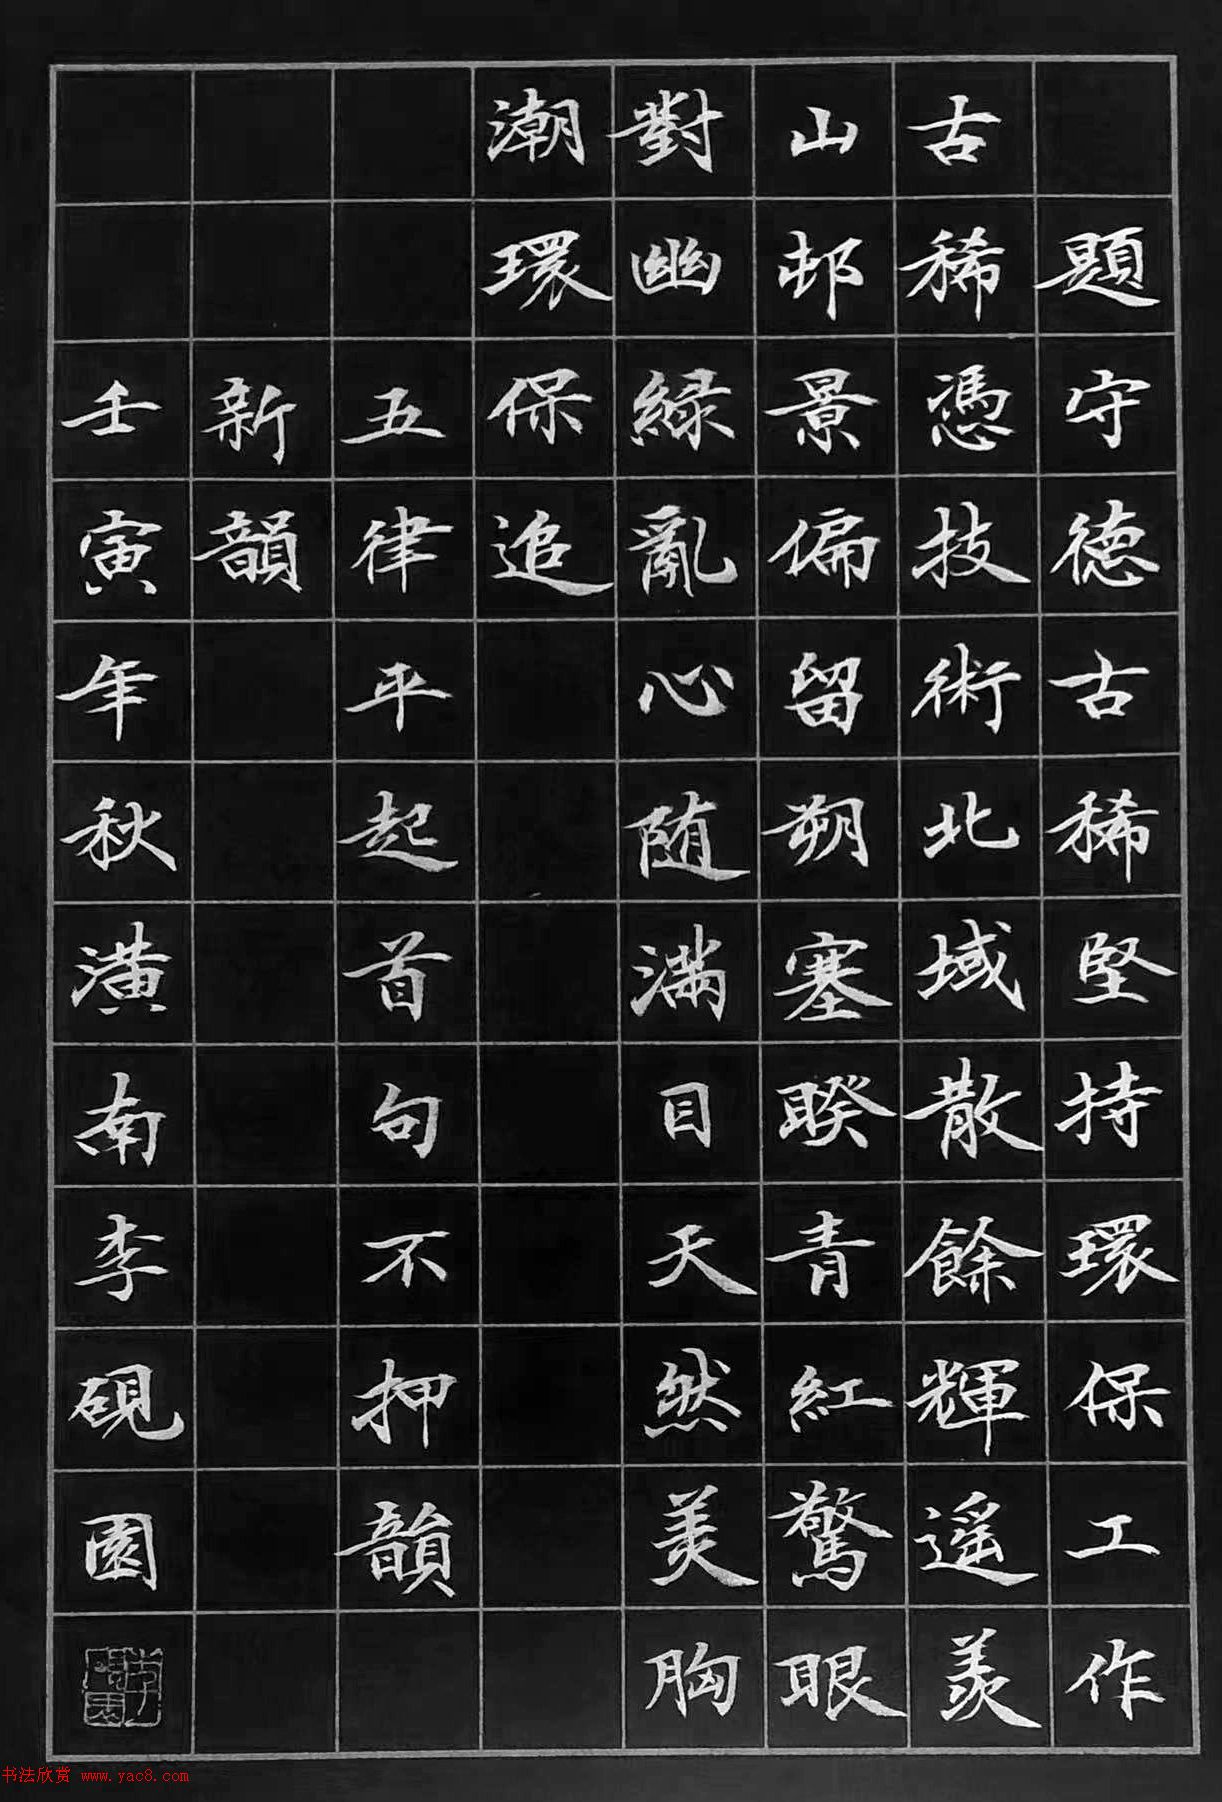 題守德古稀堅持環保工作
古稀憑技術北域散餘輝遥羨
山邨景偏留朔塞睽青紅驚眼
對幽綠亂心随滿目天然美胸
潮環保追
五律平起首句不押韻
新韻
壬寅年秋潢南李硯園
书法欣赏 www.yac8.com